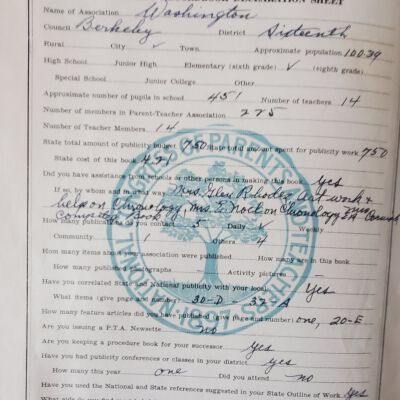 SHEET
Name of Association Washington
Council Berkeley District Sixteenth
Rural City ✓ Town Approximate population 100.39
High School Junior High Elementary (sixth grade) ✓ (eighth grade)
Special School Junior College Other
Approximate number of pupils in school 451 Number of teachers 14
Number of members in Parent-Teacher Association 225
Number of Teacher Members 14
State total amount of publicity budget 7.50 State total amount spent for publicity work 7.50
State cost of this book 4.21
Did you have assistance from schools or other persons in making this book yes
If so, by whom and in what way Mrs. Glen Rhodes, Art work &
help on Chronology, Mrs. E. on Chronology
Book
How many publications do you contact 5 Daily ✓ Weekly
Community 1 Others 4
How many items about your association were published How many are in this book
How many published photographs Activity pictures —
Have you correlated State and National publicity with your local Yes
What items (give page and number) 30-D 32-A
How many feature articles did you have published (give page and number) one, 20-E
Are you issuing a P.T.A. Newsette no
Are you keeping a procedure book for your successor. yes
Have you had publicity conferences or classes in your district yes
How many this year one Did you attend no
Have you used the National and State references suggested in your State Outline of Work. yes